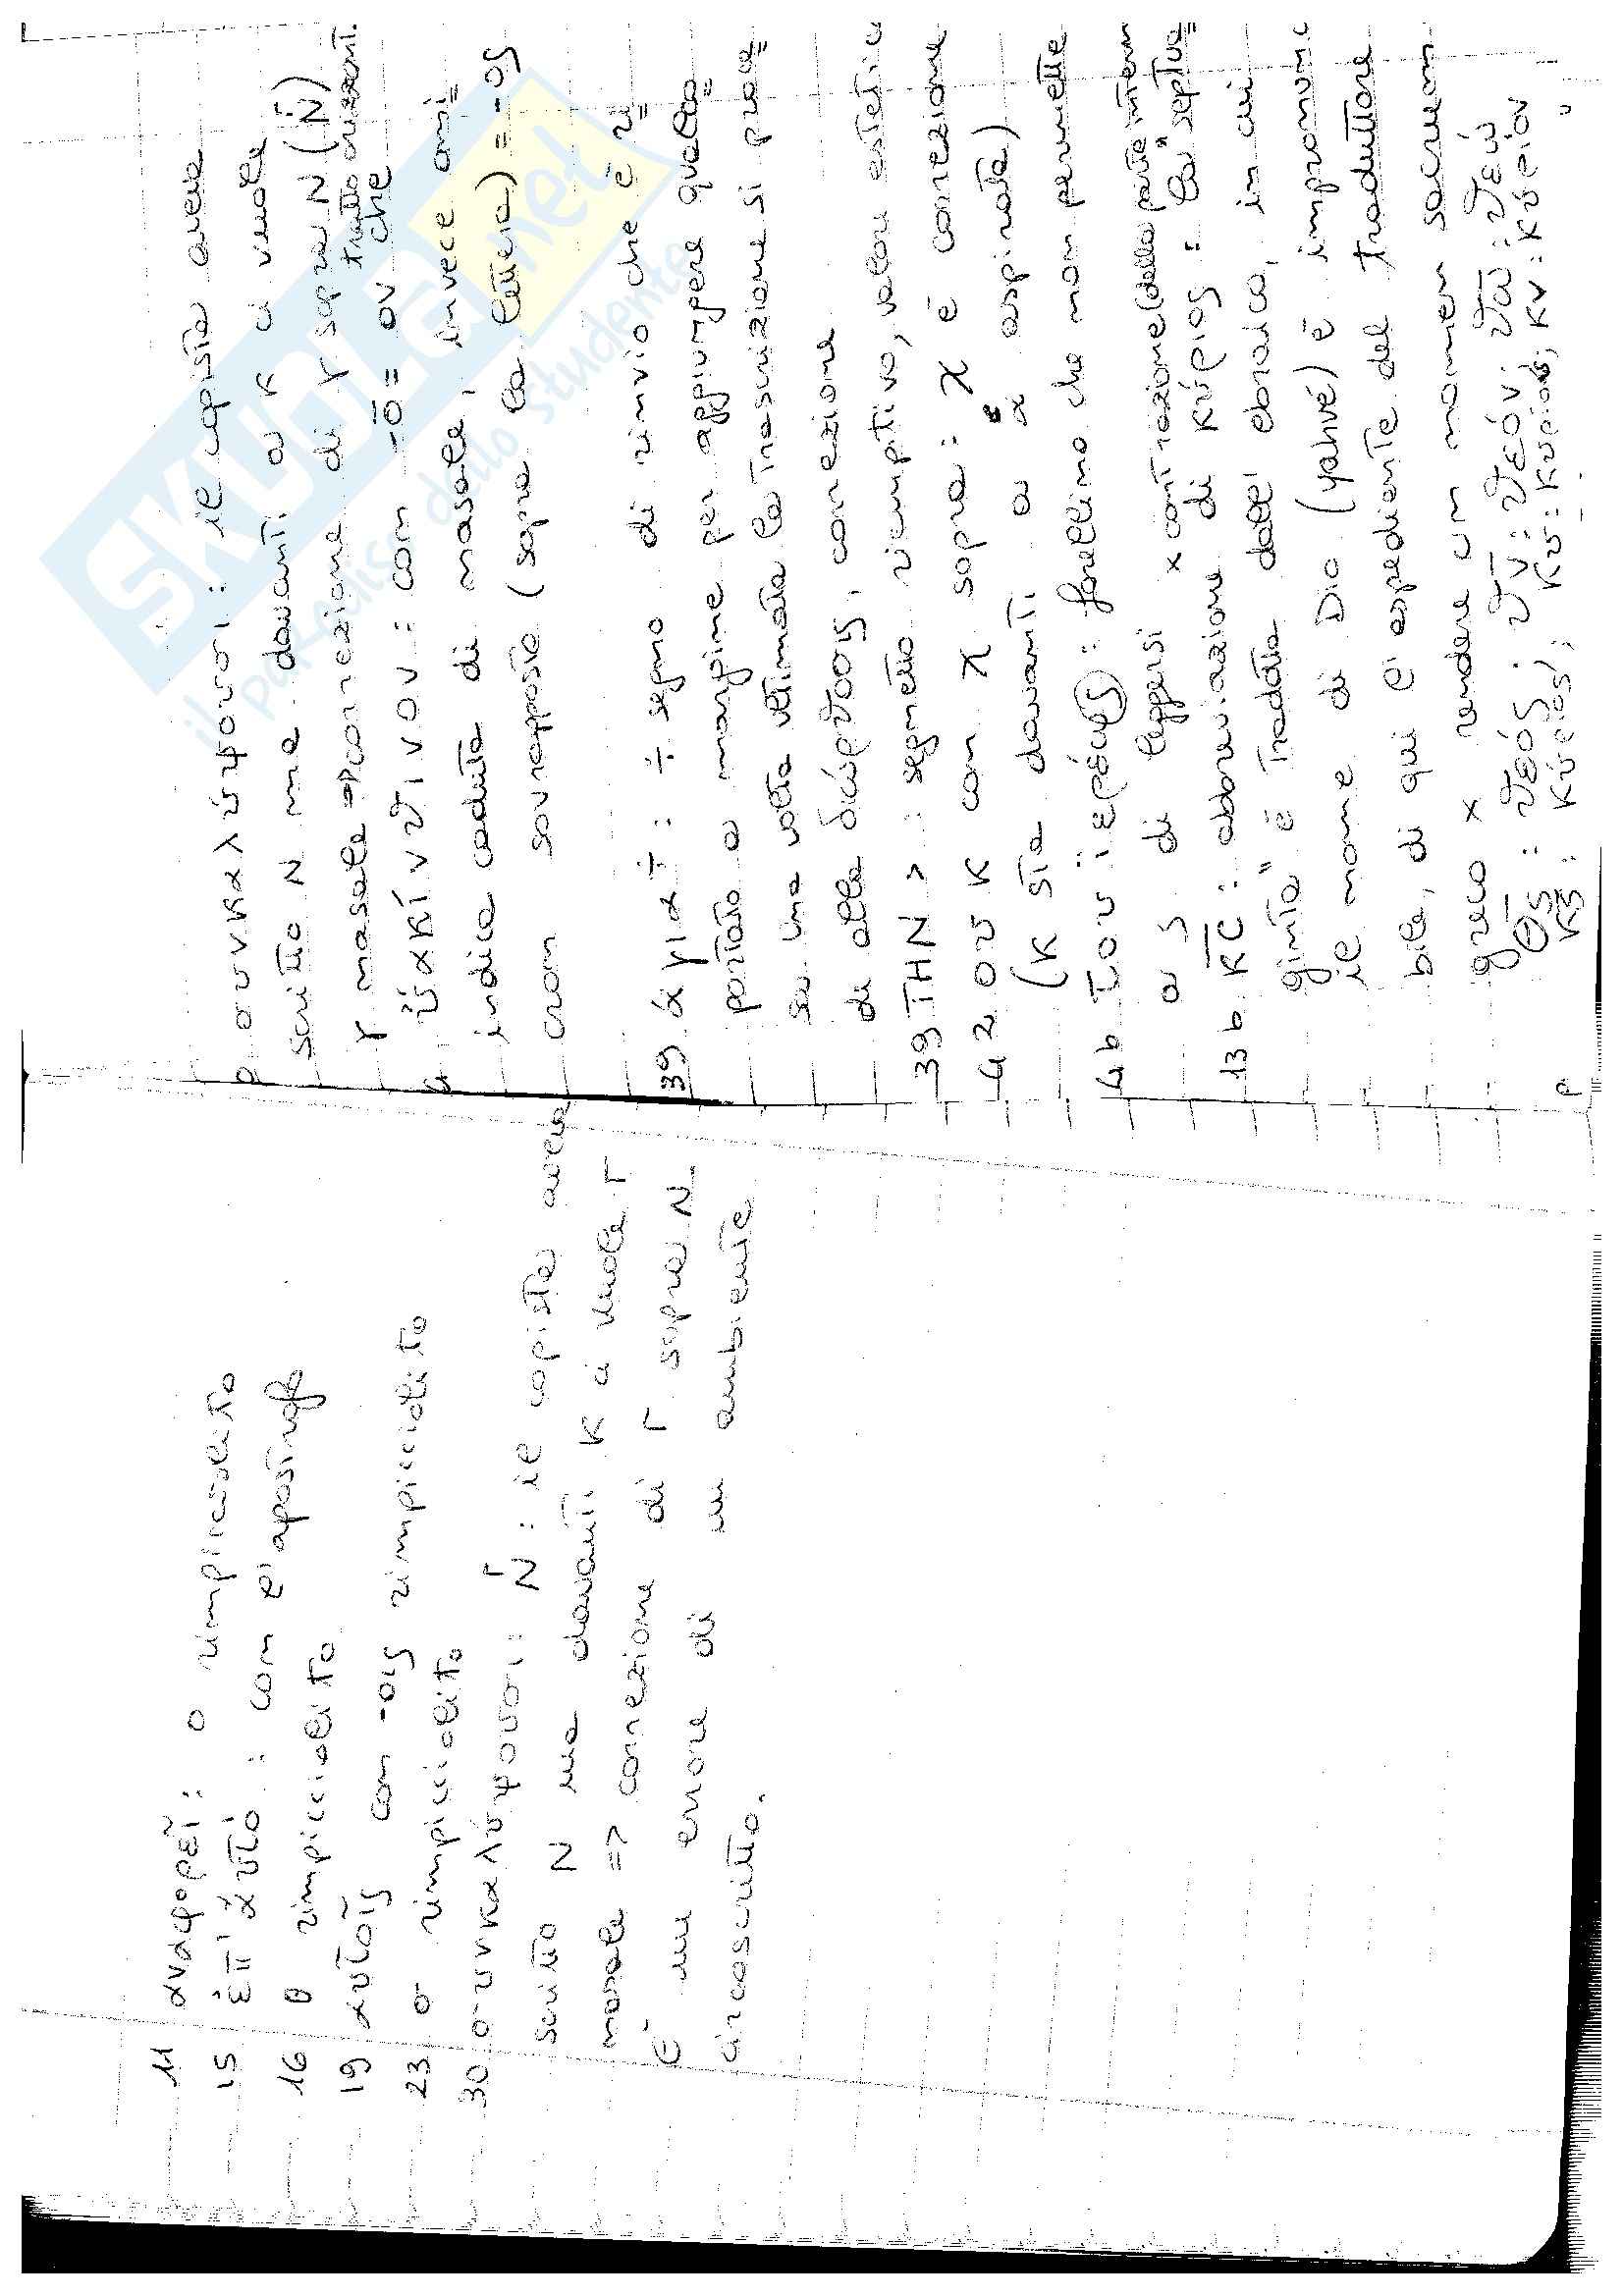 11 αναφορεῖ: o rimpicciolito
15 ἐπ' ἀυτό: con l'apostrofo
16 θ rimpicciolito
19 αυτοῖς con -οις rimpicciolito
23 σ rimpicciolito
30 συνκαλύψουσι: Ν̇: il copista aveva
scritto N ma davanti K ci vuole Γ
nasale => correzione di Γ sopra N.
È un errore di un ambiente
circoscritto.
συνκαλύψουσι: il copista aveva
scritto N ma davanti a κ ci vuole
γ nasale => correzione di γ sopra N (Ν̇)
ὑακίνθινον: con -ō = ον che tratto orizzont.
indica caduta di nasale, invece omi
cron sovrapposto (sopra la lettera) = -ος
39 ἁγια ÷: ÷ segno di rinvio che è ri
portato a margine per aggiungere quello
su una volta ultimata la trascrizione si proce
di alla διόρθοσις, correzione
39 ΤΗΝ >: segnetto riempitivo, valore estetico
42 ουκ con χ sopra: χ è correzione
(κ sta davanti a ἁ aspirata)
4b του ἱεράως: forellino che non permette
a ς di leggersi x contrazione (dalla parte intern
13b ΚC: abbreviazione di κύριος: la "septua
ginta" è tradotta dall'ebraico, in cui
il nome di Dio (yahvé) è impronunc
bile, di qui l'espediente del traduttore
greco x rendere un nomen sacrum
θς: θεός; θν: θεόν; θω: θεώ
κς: κύριος; κυ: κυρίου; κν: κύριον